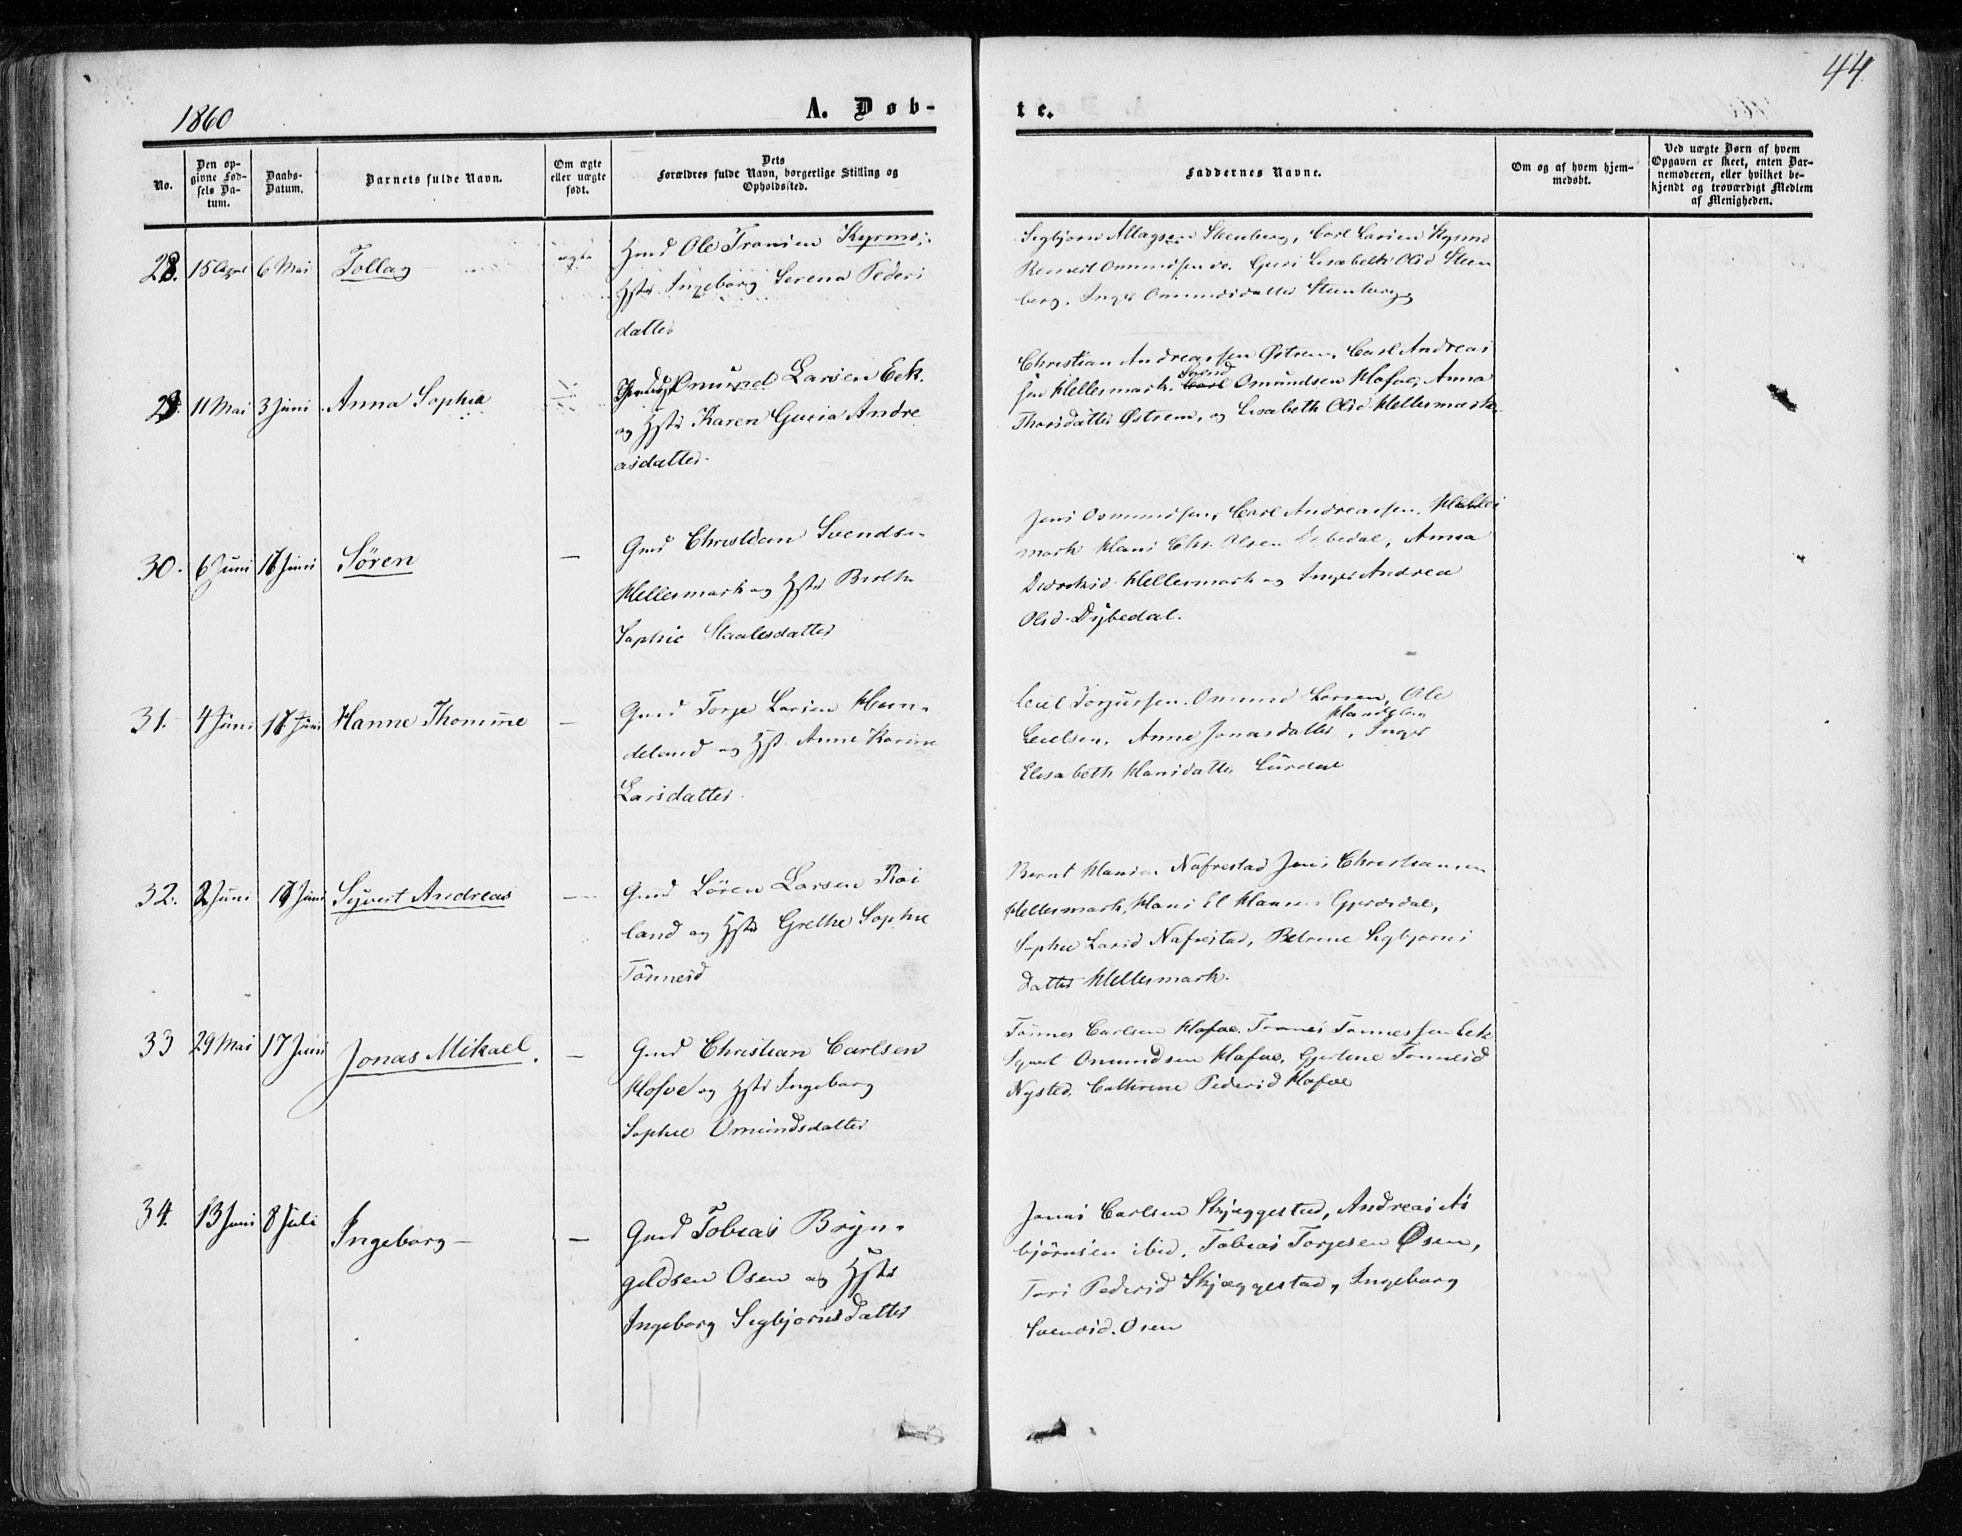 44
1860
A. Døb-
te.
No.
Den op-
givne Fød-
sels Da-
tum.
Daabs-
Datum.
Barnets fulde Navn.
Om ægte
eller uægte
født.
Dets
Forældres fulde Navn, borgerlige Stilling og
Opholdssted.
Faddernes Navne.
Om og af hvem hjem-
medøbt.
Ved uægte Børn af hvem
Opgaven er skeet, enten Bar-
nemoderen, eller hvilket be-
kjendt og troværdigt Medlem
af Menigheden.
28. 15 April 6 Mai Tollag ægte
Ole Tronsen Kyrmo
Hstr Ingeborg Serena Peders
datter
Sigbjørn Allagsen Steenberg, Carl Larsen Kyrmo
Omundsen Guri Lisabeth Olsd Steen
berg, Inger Omundsdatter Steenberg
29. 11 Mai 3 Juni Anna Sophia
Omund Larsen Eek.
og Hstr Karen Guria Andre
asdatter.
Christian Andreassen Østrem, Carl Andreas
sen Hellesmark, Svend Omundsen Hofve, Anna
Thorsdatter Østrem, og Lisabeth Olsd Hellesmark
30. 6 Juni 17 Juni Søren —
Gmd Christian Svendsen
Hellesmark og Hstr Berthe
Sophie Staalesdatter
Jens Osmundsen, Carl Andreassen Helles
mark Hans Chr. Olsen Dybedal, Anna
Hellesmark og Inger Andrea
Olsd. Dybedal.
31. 4 Juni 17 Juni Hanne Thomine —
Gmd Torje Larsen Hau-
deland og Hst. Anne Karine
Larsdatter.
Torjussen, Omund Larsen, Ole
Anne Jonasdatter, Inger
Elisabeth Hansdatter Lürdal
32. 2 Juni 17 Juni Syvert Andreas —
Gmd Søren Larsen Roi
land og Hstr Grethe Sophie
Tönnesd
Bernt Hansen Nafrestad Jens Christiansen
Hellesmark, Hans El Hansen
Sophie Larsd Nafrestad, Petrine Sigbjørns
datter Hellesmark.
33 29 Mai 17 Juni Jonas Mikael. —
Gmd Christian Carlsen
Hofve og Hstr Ingeborg
Sophie Omundsdatter
Tönnes Carlsen Hofve, Tönnessen Eek
Syvert Omundsen Hofve, Gjertine Tönnesd
Nysted, Cathrine Pedersd Hofve
34. 13 Juni 8 Juli Ingeborg — —
Gmd Tobias Bryn-
geldsen Osen og Hstr
Ingeborg Sigbjørnsdatter
Jonas Carlsen Skjæggestad, Andreas As
bjørnsen ibid, Tobias Torjesen Osen,
Tori Pedersd Skjæggestad, Ingeborg
Svendsd. Osen